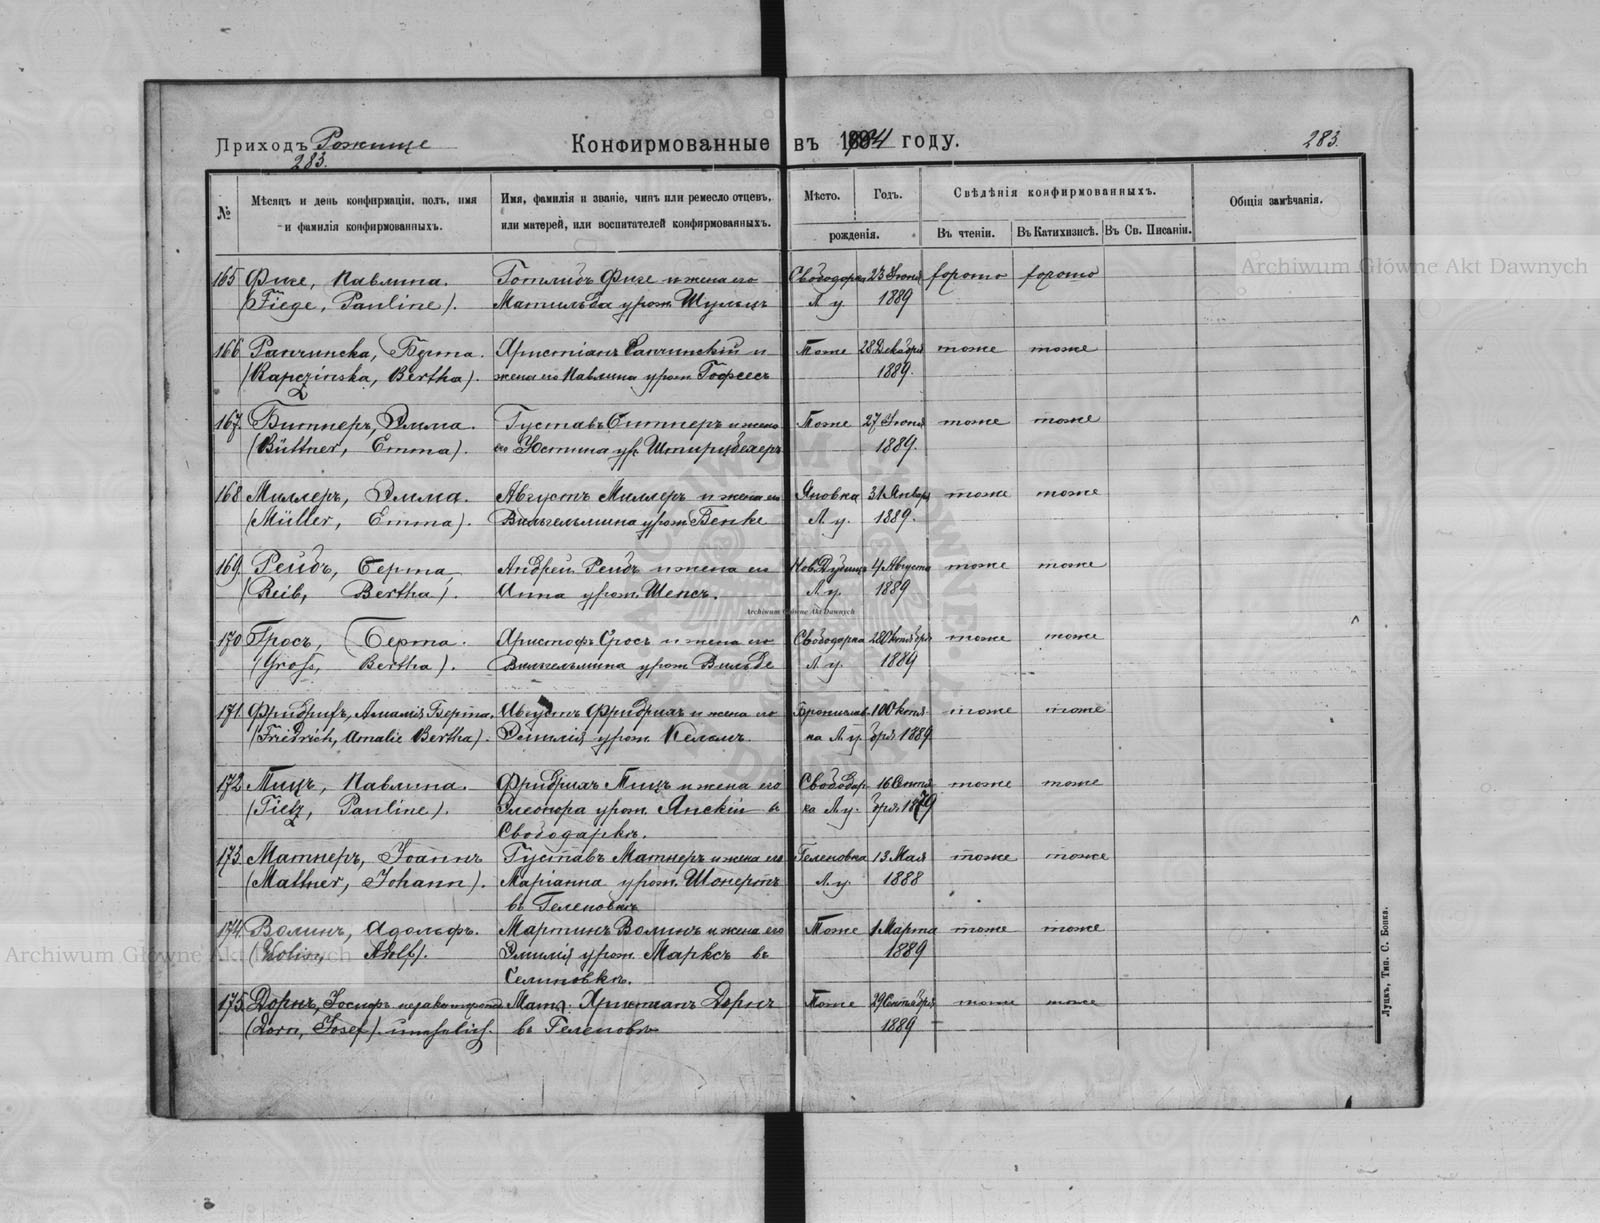 Приходъ Рожище
283.
Конфирмованные въ 1904 году.
283.
№
Мѣсяцъ и день конфирмаціи, полъ, имя
и фамилія конфирмованныхъ.
Имя, фамилія и званіе, чинъ или ремесло отцевъ,
или матерей, или воспитателей конфирмованныхъ.
Мѣсто.
Годъ.
рожденія.
Свѣдѣнія конфирмованныхъ.
Въ чтеніи.
Въ Катихизисѣ.
Въ Св. Писаніи.
Общія замѣчанія.
165 Фиге, Павлина. Готлибъ Фиге и жена его Свободарка 23 Іюня хорошо хорошо
(Fiege, Pauline). Матильда урож. Шульцъ Л. у. 1889
166 Рапчинска, Берта. Христіанъ Рапчинскій и Тоже 28 Декабря тоже тоже
(Rapczinska, Bertha). жена его Павлина урож. 1889.
167. Битнеръ, Эмма. Густавъ Битнеръ и жена Тоже 27 Іюня тоже тоже
(Büttner, Emma). его Юстина ур. 1889.
168. Миллеръ, Эмма. Августъ Миллеръ и жена его Яновка 31 Января тоже тоже
(Müller, Emma). Вильгельмина урож. Бенке Л. у. 1889.
169. Рейбъ, Берта, Андрей Рейбъ и жена его Нов. 4 Августа тоже тоже
(Reib, Bertha). Анна урож. Шенсъ. Л. у. 1889
170 Гросъ, Берта. Христофъ Гросъ и жена его Свободарка 28 Октября тоже тоже
(Groß, Bertha). Вильгельмина урож. Вильде Л. у. 1889
171. Фридрихъ, Амалія Берта. Августъ Фридрихъ и жена его Брониславка 10 Октя тоже тоже
(Friedrich, Amalie Bertha). Эмилія урож. Л. у. бря 1889
172 Тицъ, Павлина. Фридрихъ Тицъ и жена его Свободар 16 Сентя тоже тоже
(Tietz, Pauline). Элеонора урож. Янскій въ ка Л. у. бря 1879
Свободаркѣ.
173. Матнеръ, Іоаннъ Густавъ Матнеръ и жена его Геленовка 13 Мая тоже тоже
(Mattner, Johann). Маріанна урож. Шонертъ Л. у. 1888
въ Геленовкѣ
174. Волинъ, Адольфъ. Мартинъ Волинъ и жена его Тоже 1 Марта тоже тоже
(Wolin, Adolf). Эмилія урож. Марксъ въ 1889
175. Дорнъ, Іосифъ Мать: Христіанъ Дорнъ Тоже 29 Сентября тоже тоже
(Dorn, Josef). unehelich. въ Геленовкѣ 1889
Луцкъ, Тип. С. Бонка.
Archiwum Główne Akt Dawnych
Archiwum Główne Akt Dawnych
Archiwum Główne Akt Dawnych